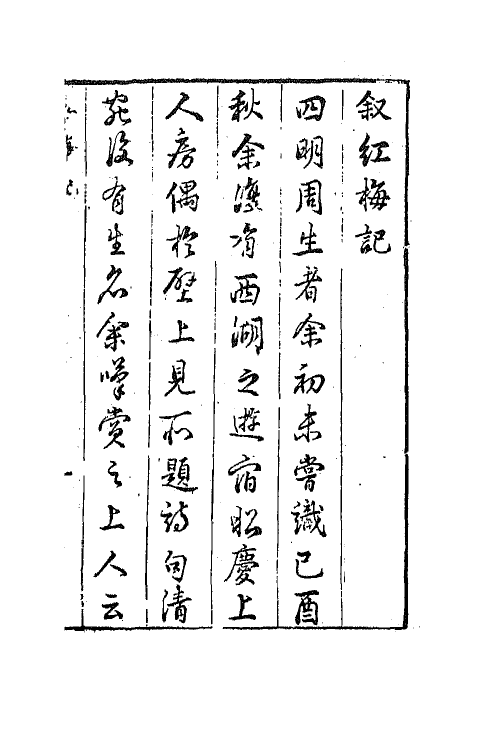 叙红梅記
四明周生者余初未嘗識己酉
秋余偶有西湖之遊宿昭慶上
人房偶於壁上見所題詩句清
葩後有生名余嘆賞之上人云